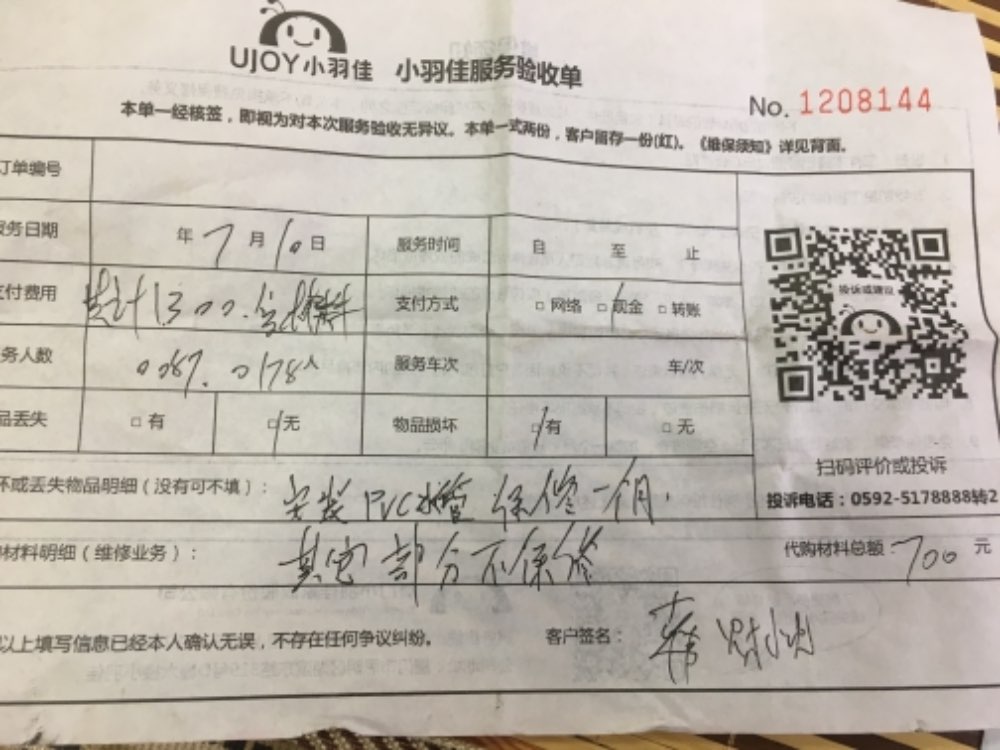 UJOY小羽佳 小羽佳服务验收单
No. 1208144
本单一经核签，即视为对本次服务验收无异议。本单一式两份，客户留存一份(红)。《维保须知》详见背面。
订单编号
服务日期 年 7 月 10 日 服务时间 自 至 止
支付费用 共计1300.含材料 支付方式 □ 网络 □ 现金 □ 转账
务人数 0087. 0178人 服务车次 车/次
品丢失 □ 有 □ 无 物品损坏 □ 有 □ 无
投诉或建议
扫码评价或投诉
投诉电话：0592-5178888转2
坏或丢失物品明细（没有可不填）：安装PVC水管 保修一个月.
材料明细（维修业务）：其它部分不保修 代购材料总额：700 元
以上填写信息已经本人确认无误，不存在任何争议纠纷。 客户签名：